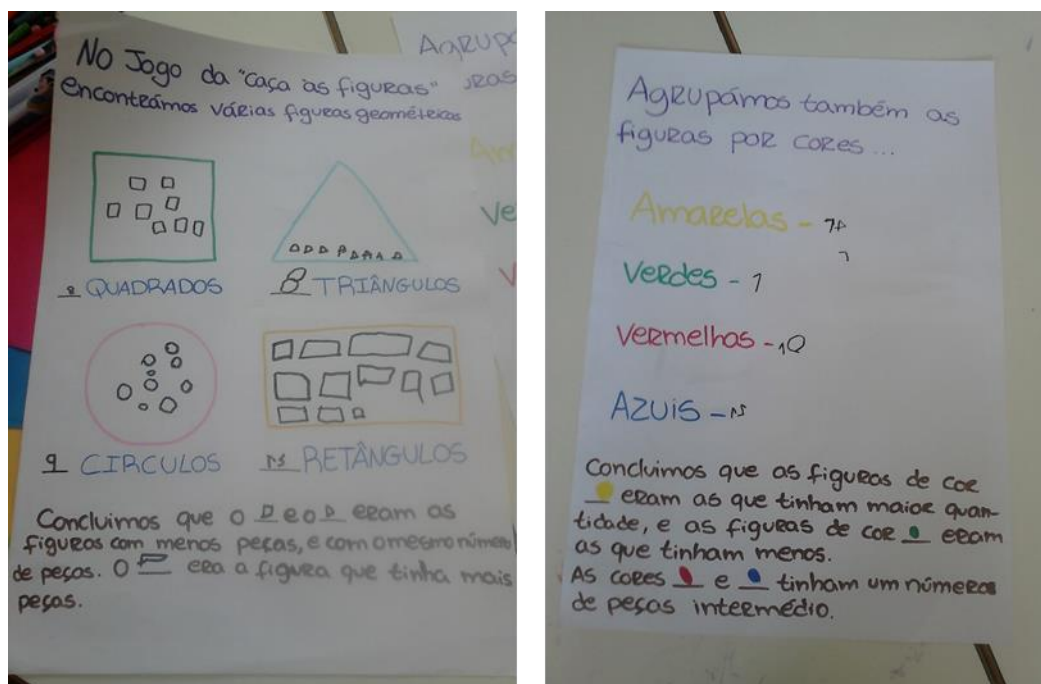 No Jogo da "caça às figuras"
encontrámos várias figuras geométricas
8 QUADRADOS
8 TRIÂNGULOS
9 CIRCULOS
RETÂNGULOS
Concluimos que o e o eram as
figuras com menos peças, e com o mesmo número
de peças. O era a figura que tinha mais
peças.
Agrupámos também as
figuras por cores...
Amarelas -
Verdes - 7
Vermelhas - 10
AZUIS -
Concluimos que as figuras de cor
eram as que tinham maior quan-
tidade, e as figuras de cor eram
as que tinham menos.
As cores e tinham um números
de peças intermédio.